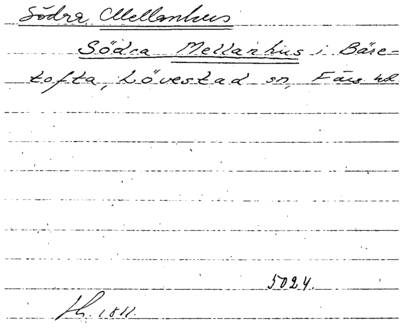 Södra Mellanhus
Södra Mellanhus i Bäre-
tofta, Lövestad sn, Färs hd
5024.
1811.